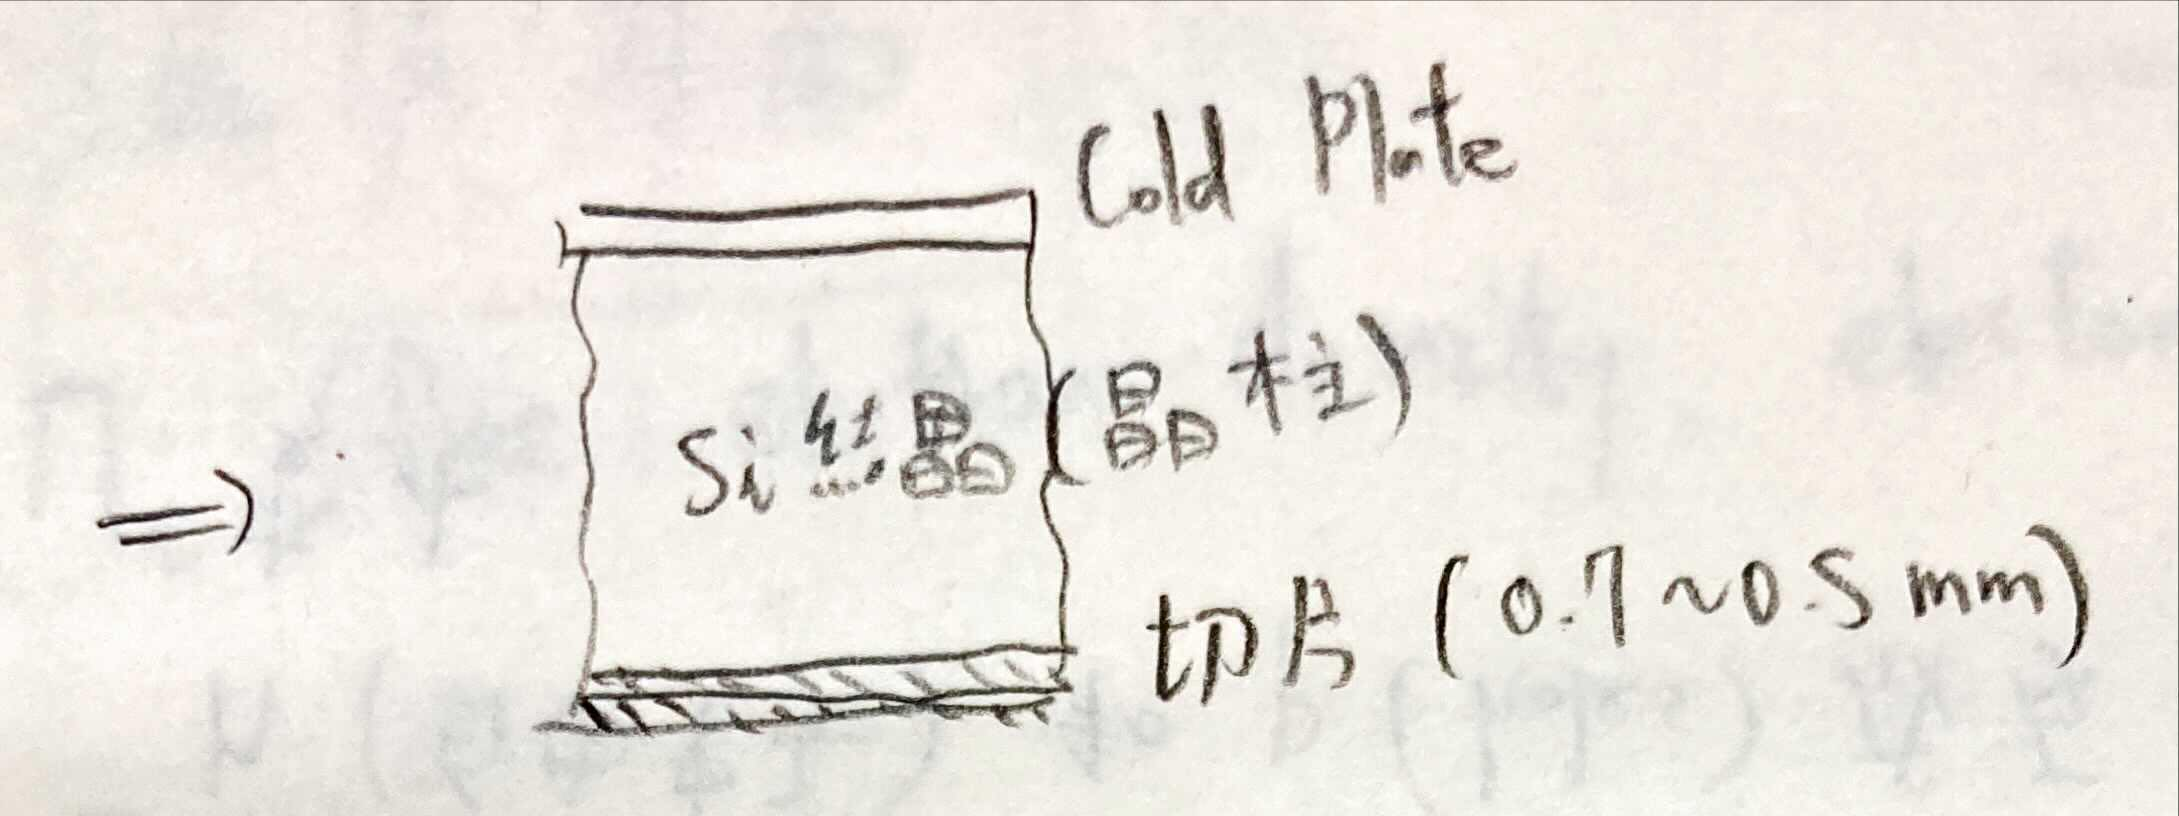 Cold Plate
Si 結晶 (晶柱)
切片 (0.7~0.5 mm)